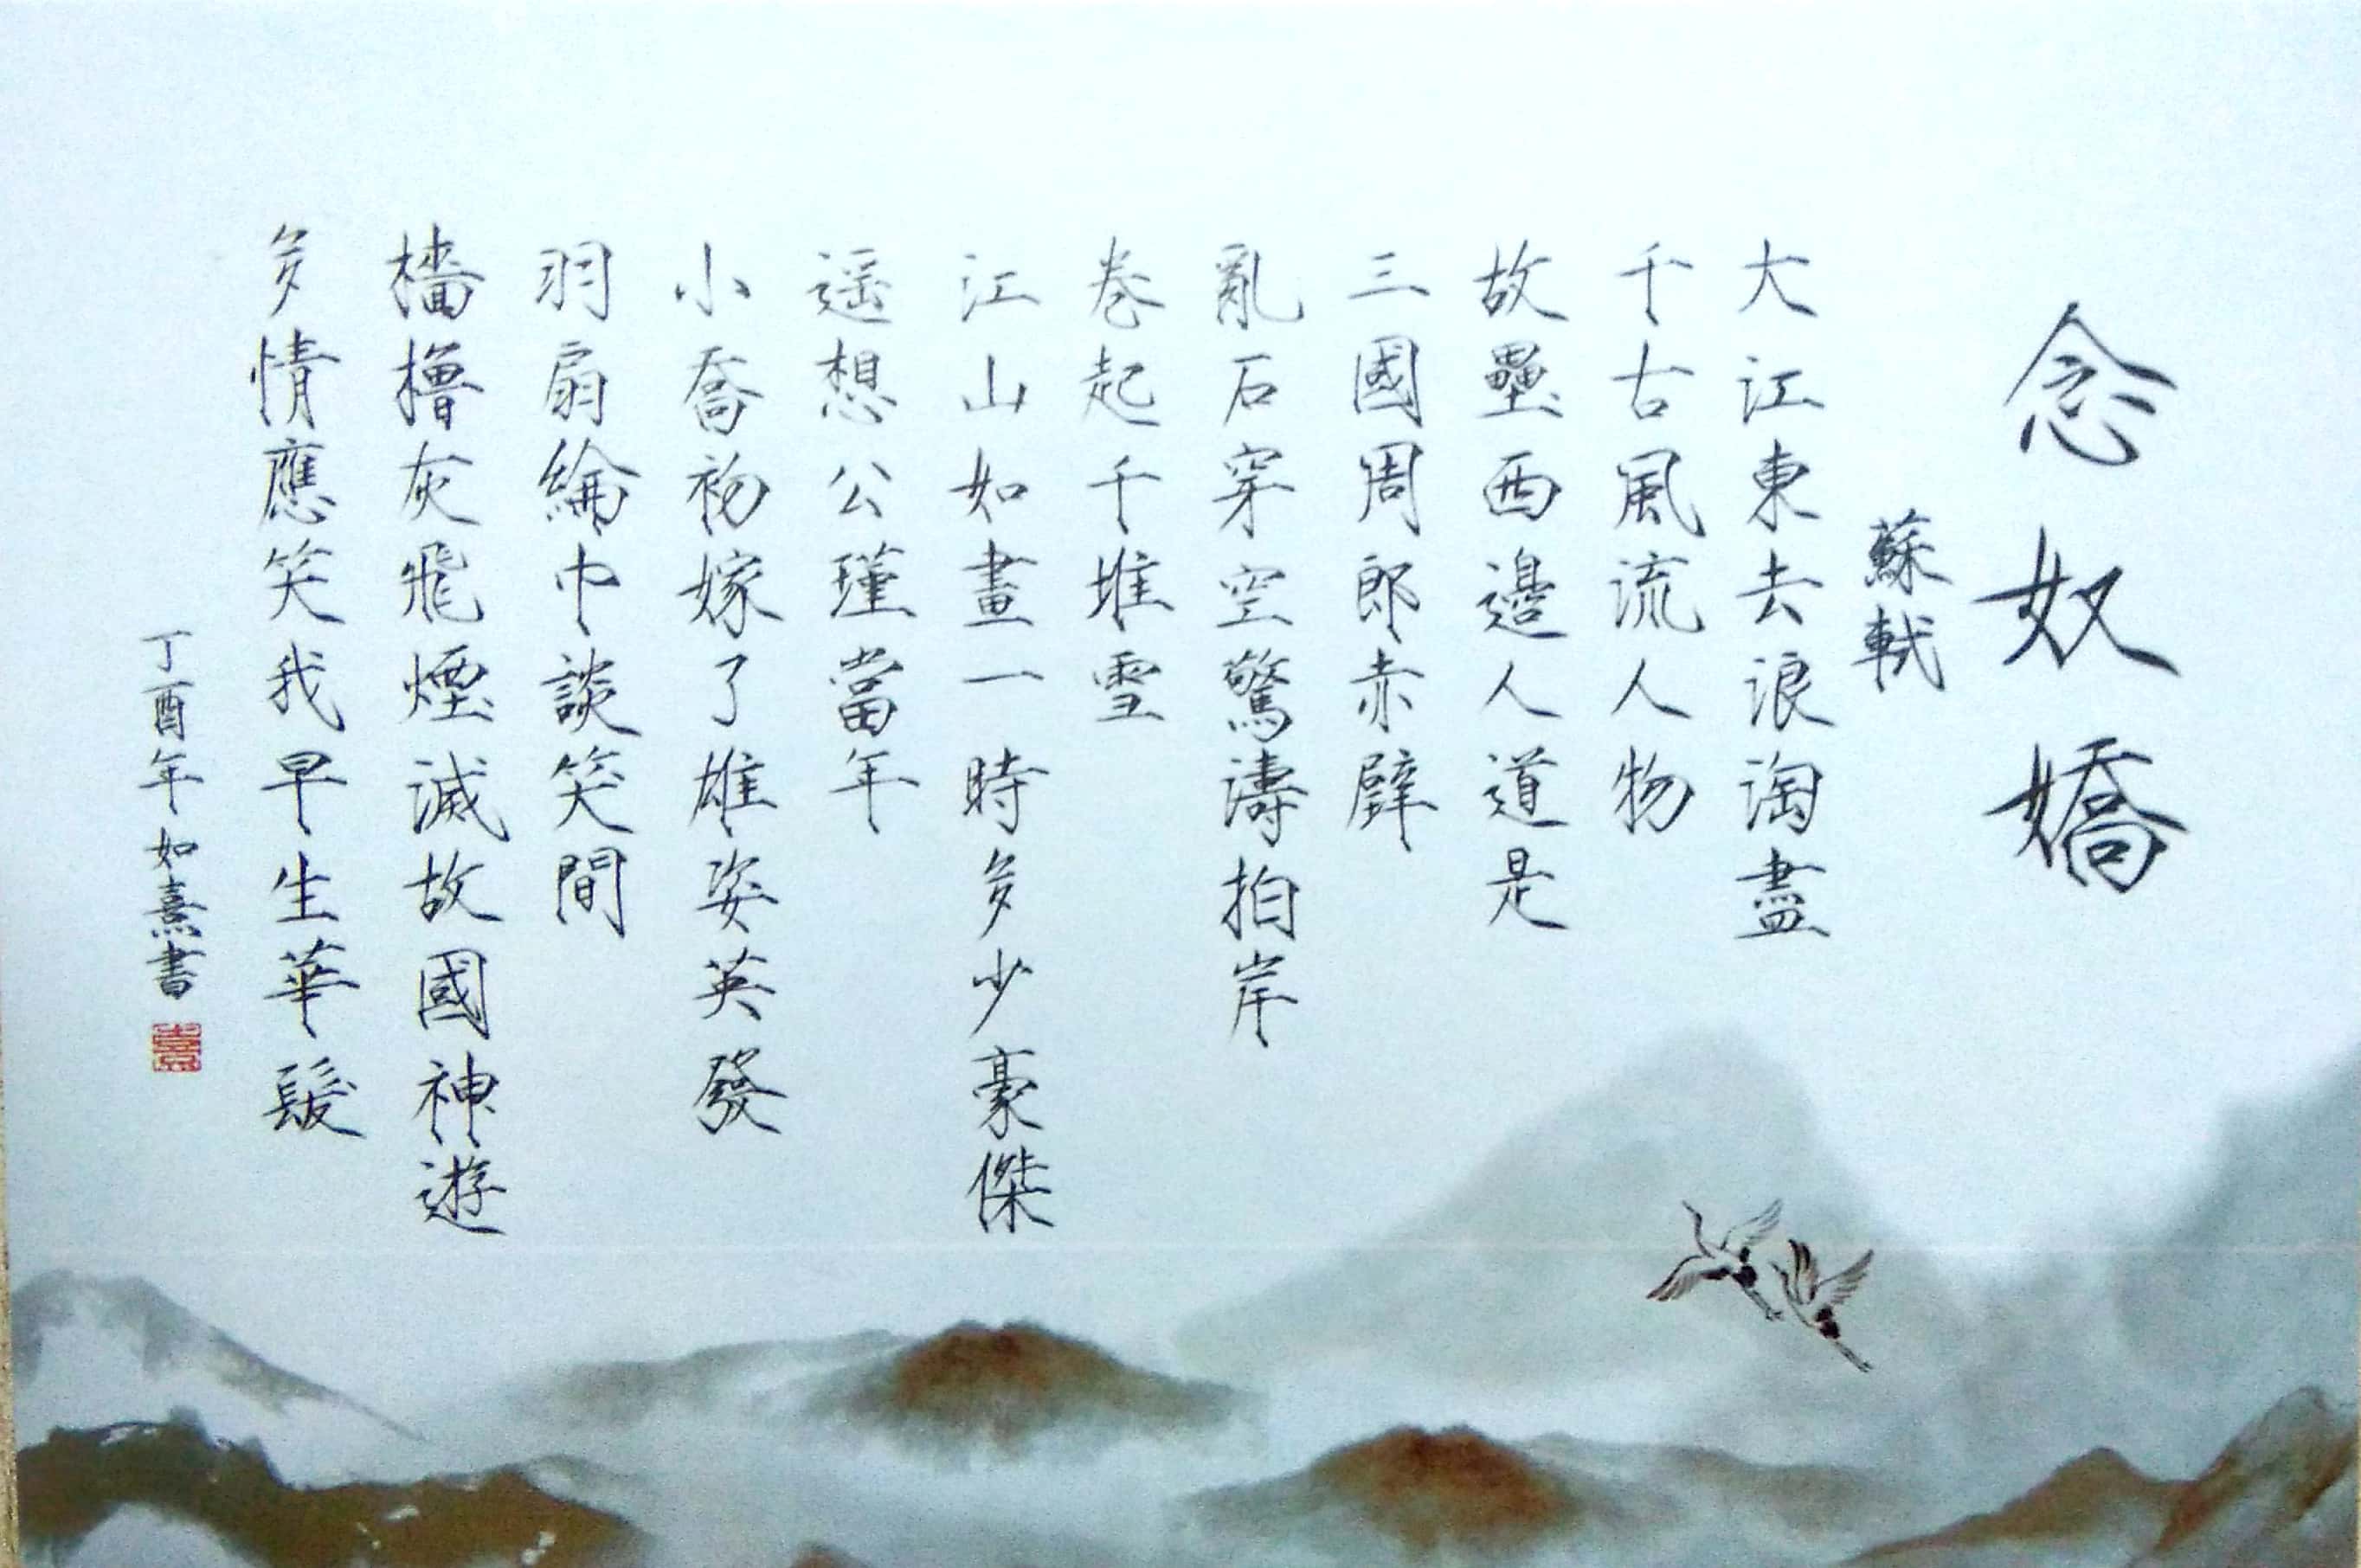 念奴嬌
蘇軾
大江東去浪淘盡
千古風流人物
故壘西邊人道是
三國周郎赤壁
亂石穿空驚濤拍岸
卷起千堆雪
江山如畫一時多少豪傑
遥想公瑾當年
小喬初嫁了雄姿英發
羽扇綸巾談笑間
檣櫓灰飛煙滅故國神遊
多情應笑我早生華髮
丁酉年如熹書